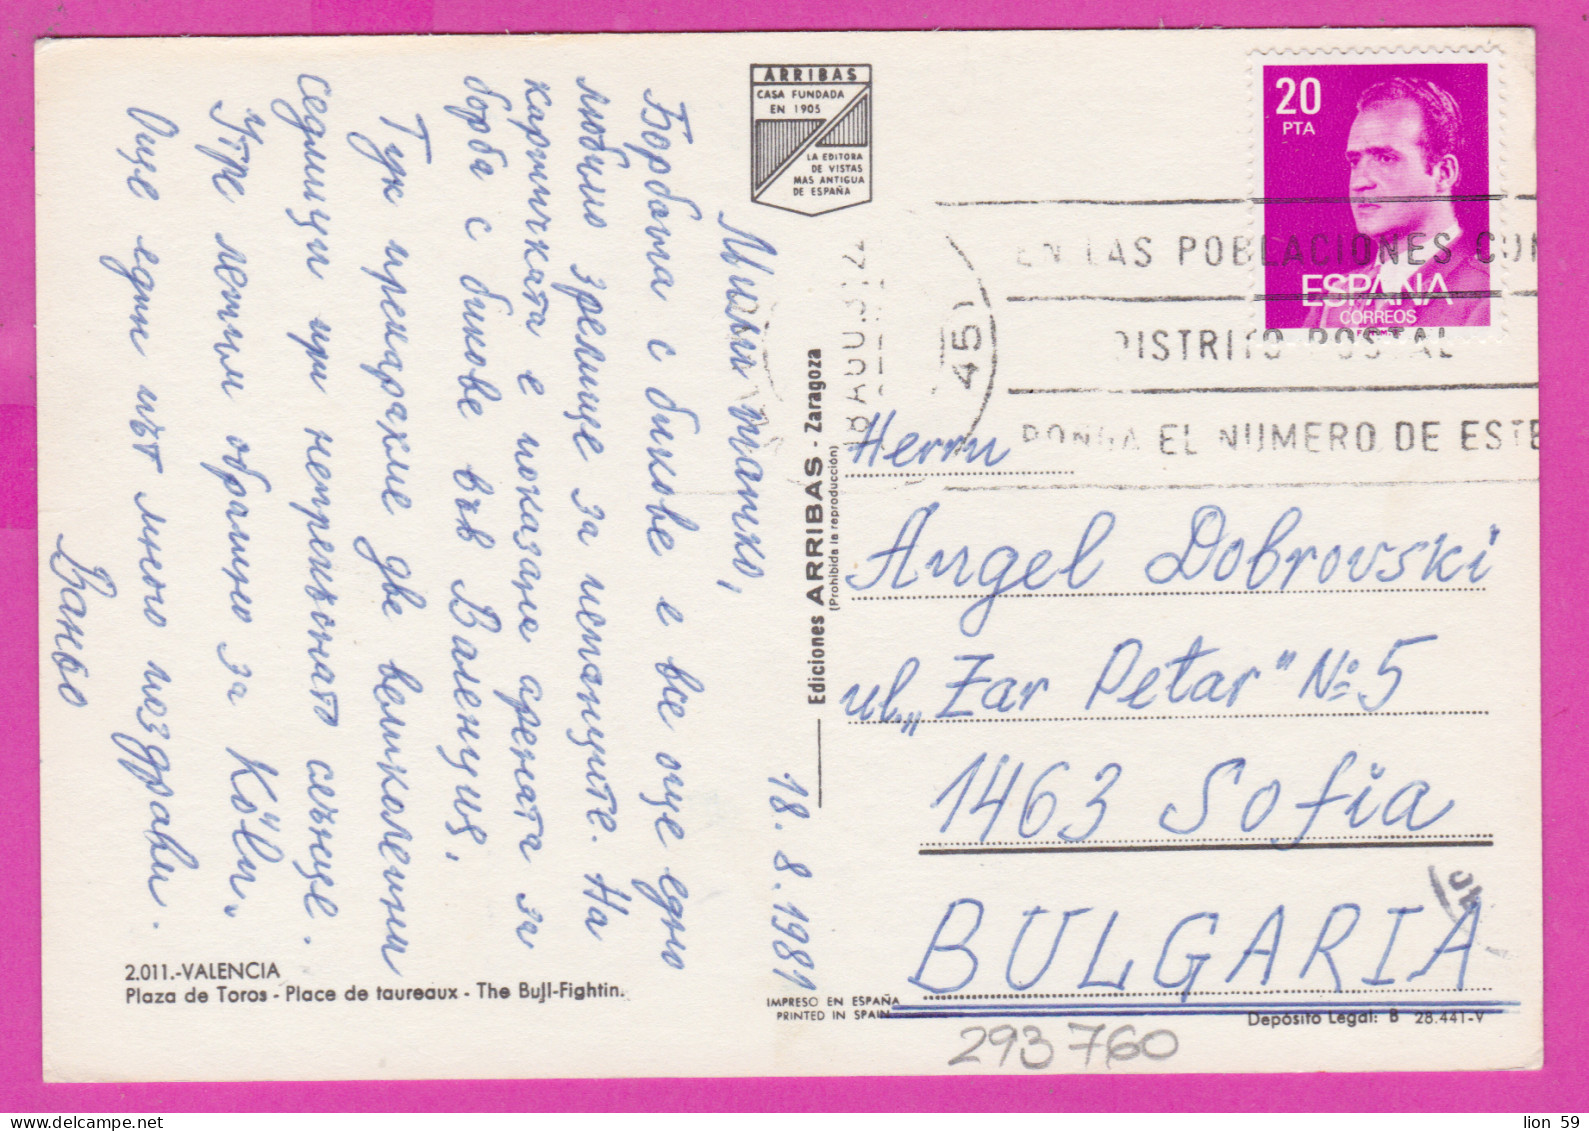 ARRIBAS
CASA FUNDADA
EN 1905
LA EDITORA
DE VISTAS
MAS ANTIGUA
DE ESPAÑA
20
PTA
ESPAÑA
CORREOS
EN LAS POBLACIONES CON
DISTRITO POSTAL
PONGA EL NUMERO DE ESTE
18.8.1981
Мили татко,
Борбата с бикове е все още едно
любимо зрелище за испанците. На
картичката е показана арената за
борба с бикове във Валенция.
Тук прекарахме две великолепни
седмици при непрекъснато слънце.
Утре летим обратно за Köln.
Още един път много поздрави.
Ваньо
Ediciones ARRIBAS - Zaragoza
(Prohibida la reproducción)
Herrn
Angel Dobrovski
ul. „Zar Petar" № 5
1463 Sofia
BULGARIA
2.011.-VALENCIA
Plaza de Toros - Place de taureaux - The Bull-Fightin.
IMPRESO EN ESPAÑA
PRINTED IN SPAIN
Depósito Legal: B 28.441-V
293760
lion 59